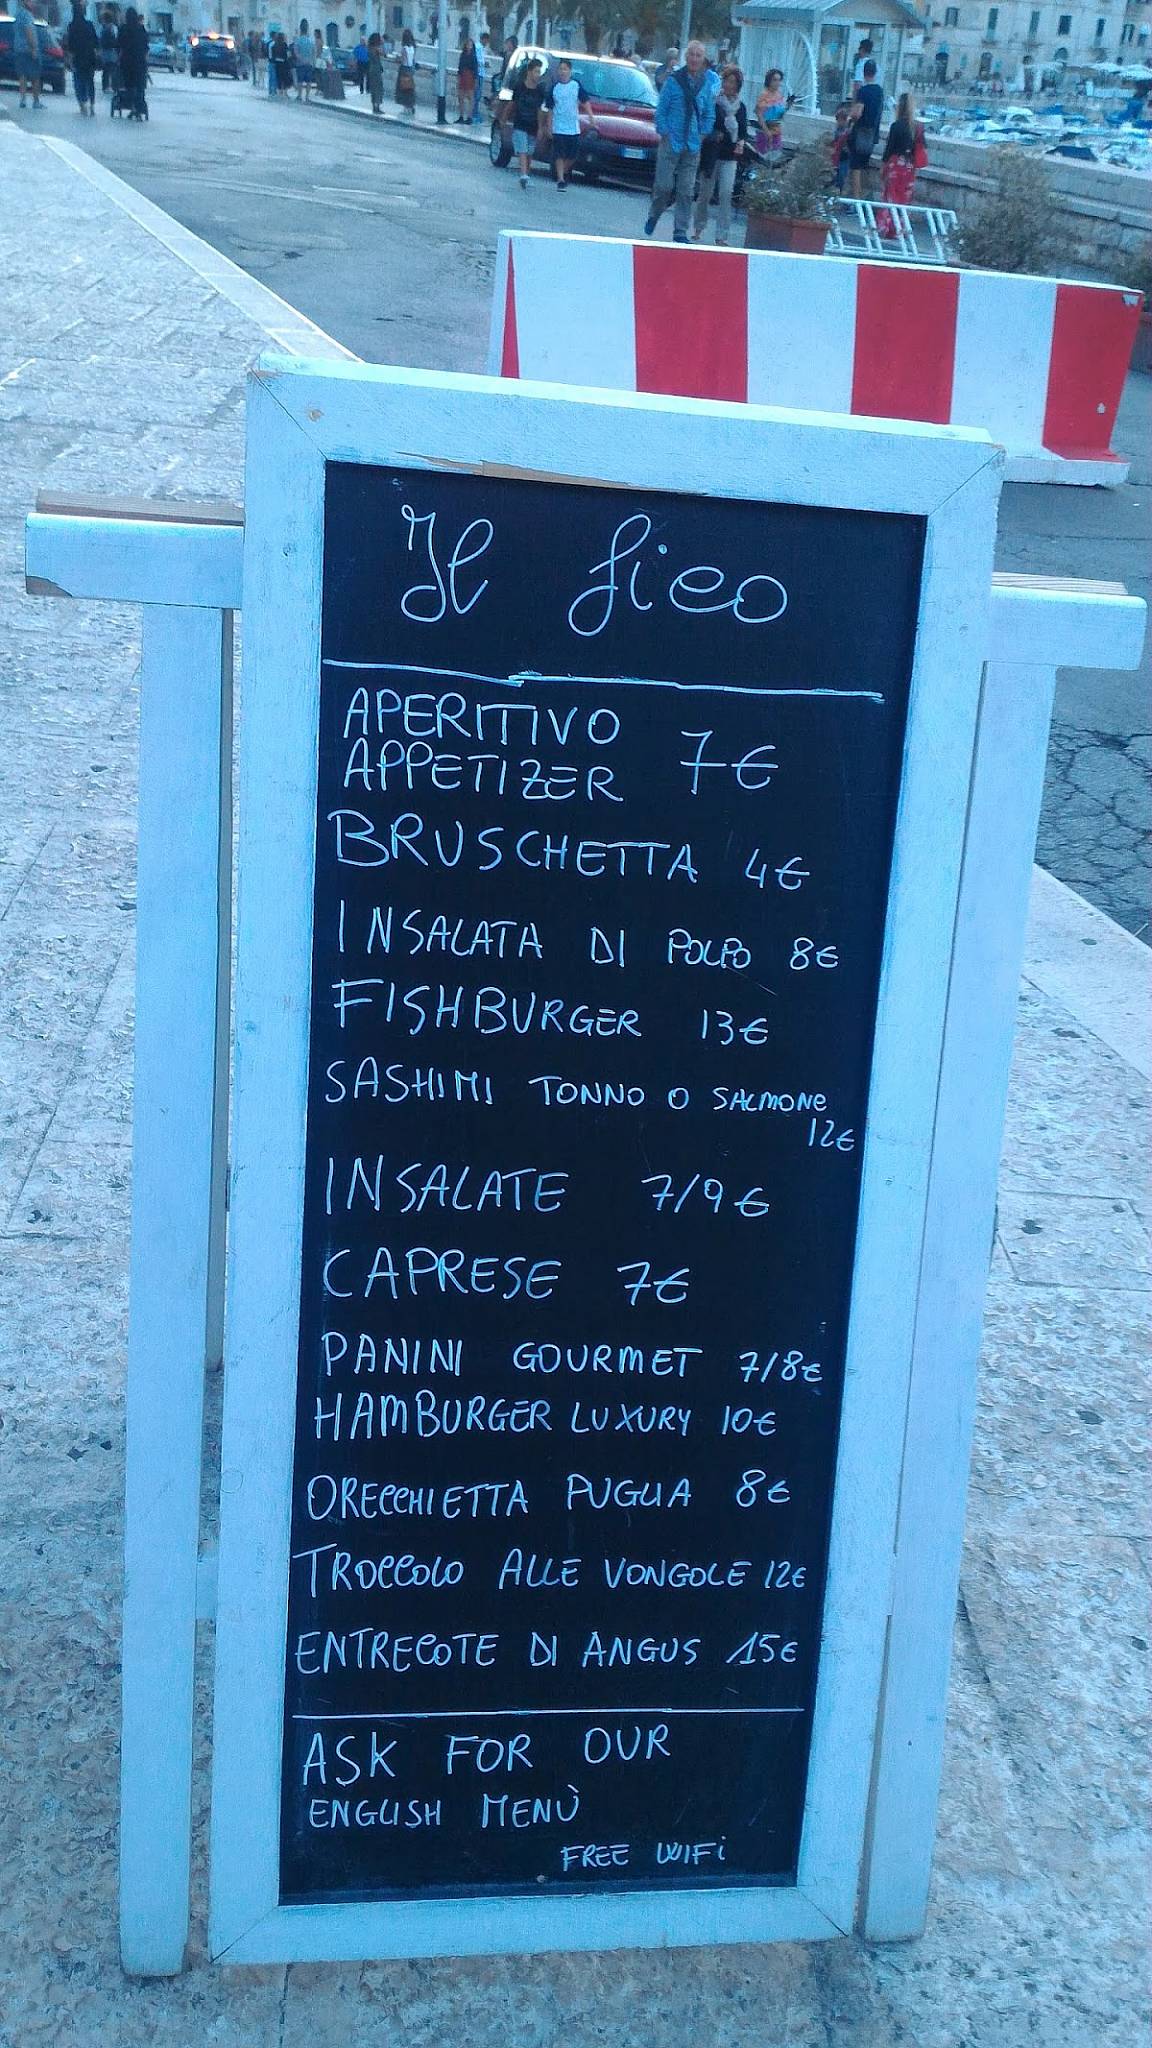 Il fico
APERITIVO
APPETIZER 7€
BRUSCHETTA 4€
INSALATA DI POLPO 8€
FISHBURGER 13€
SASHIMI TONNO O SALMONE
12€
INSALATE 7/9€
CAPRESE 7€
PANINI GOURMET 7/8€
HAMBURGER LUXURY 10€
ORECCHIETTA PUGLIA 8€
TROCCOLO ALLE VONGOLE 12€
ENTRECOTE DI ANGUS 15€
ASK FOR OUR
ENGLISH MENÙ
FREE WIFI